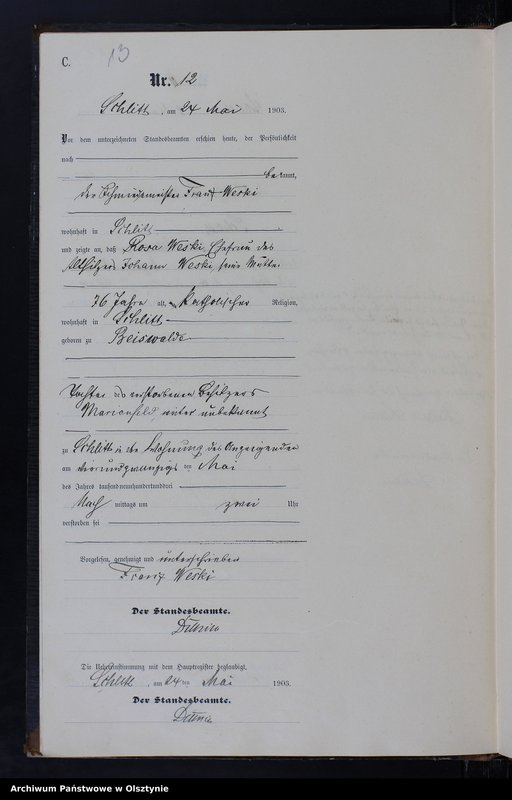 C.
13
Nr. 12
Schlitt, am 24 Mai 1903.
Vor dem unterzeichneten Standesbeamten erschien heute, der Persönlichkeit
nach
bekannt,
der Schmiedemeister Franz Weski
wohnhaft in Schlitt
und zeigte an, daß Rosa Weski, Ehefrau des
Altsitzers Johann Weski, seine Mutter
76 Jahre alt, katholischer Religion,
wohnhaft in Schlitt
geboren zu Beiswalde
Tochter des verstorbenen Besitzers
Marienfeld, weiter unbekannt
zu Schlitt in der Wohnung des Anzeigenden
am vierundzwanzigsten Mai
des Jahres tausendneunhundertunddrei
Nach mittags um zwei Uhr
verstorben sei
Vorgelesen, genehmigt und unterschrieben
Franz Weski
Der Standesbeamte.
Die Uebereinstimmung mit dem Hauptregister beglaubigt.
Schlitt, am 24 ten Mai 1903.
Der Standesbeamte.
Archiwum Państwowe w Olsztynie